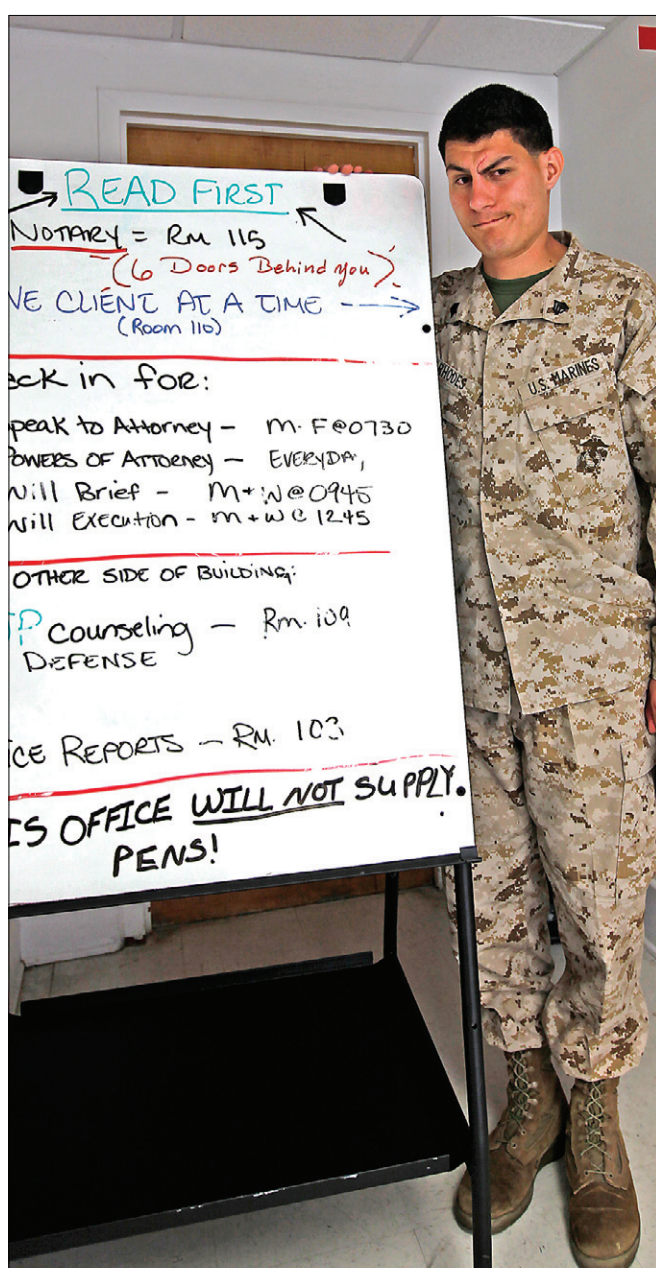 READ FIRST
NOTARY = RM 115
(6 Doors Behind you)
VE CLIENT AT A TIME
(Room 110)
eck in for:
peak to Attorney - M-F@0730
OWERS OF ATTORNEY - EVERYDA,
Will Brief - M+W@0945
Will Execution - M+W@1245
OTHER SIDE OF BUILDING:
Counseling - Rm. 109
DEFENSE
ICE REPORTS - RM. 103
IS OFFICE WILL NOT SUPPLY.
PENS!
RHODES
U.S. MARINES